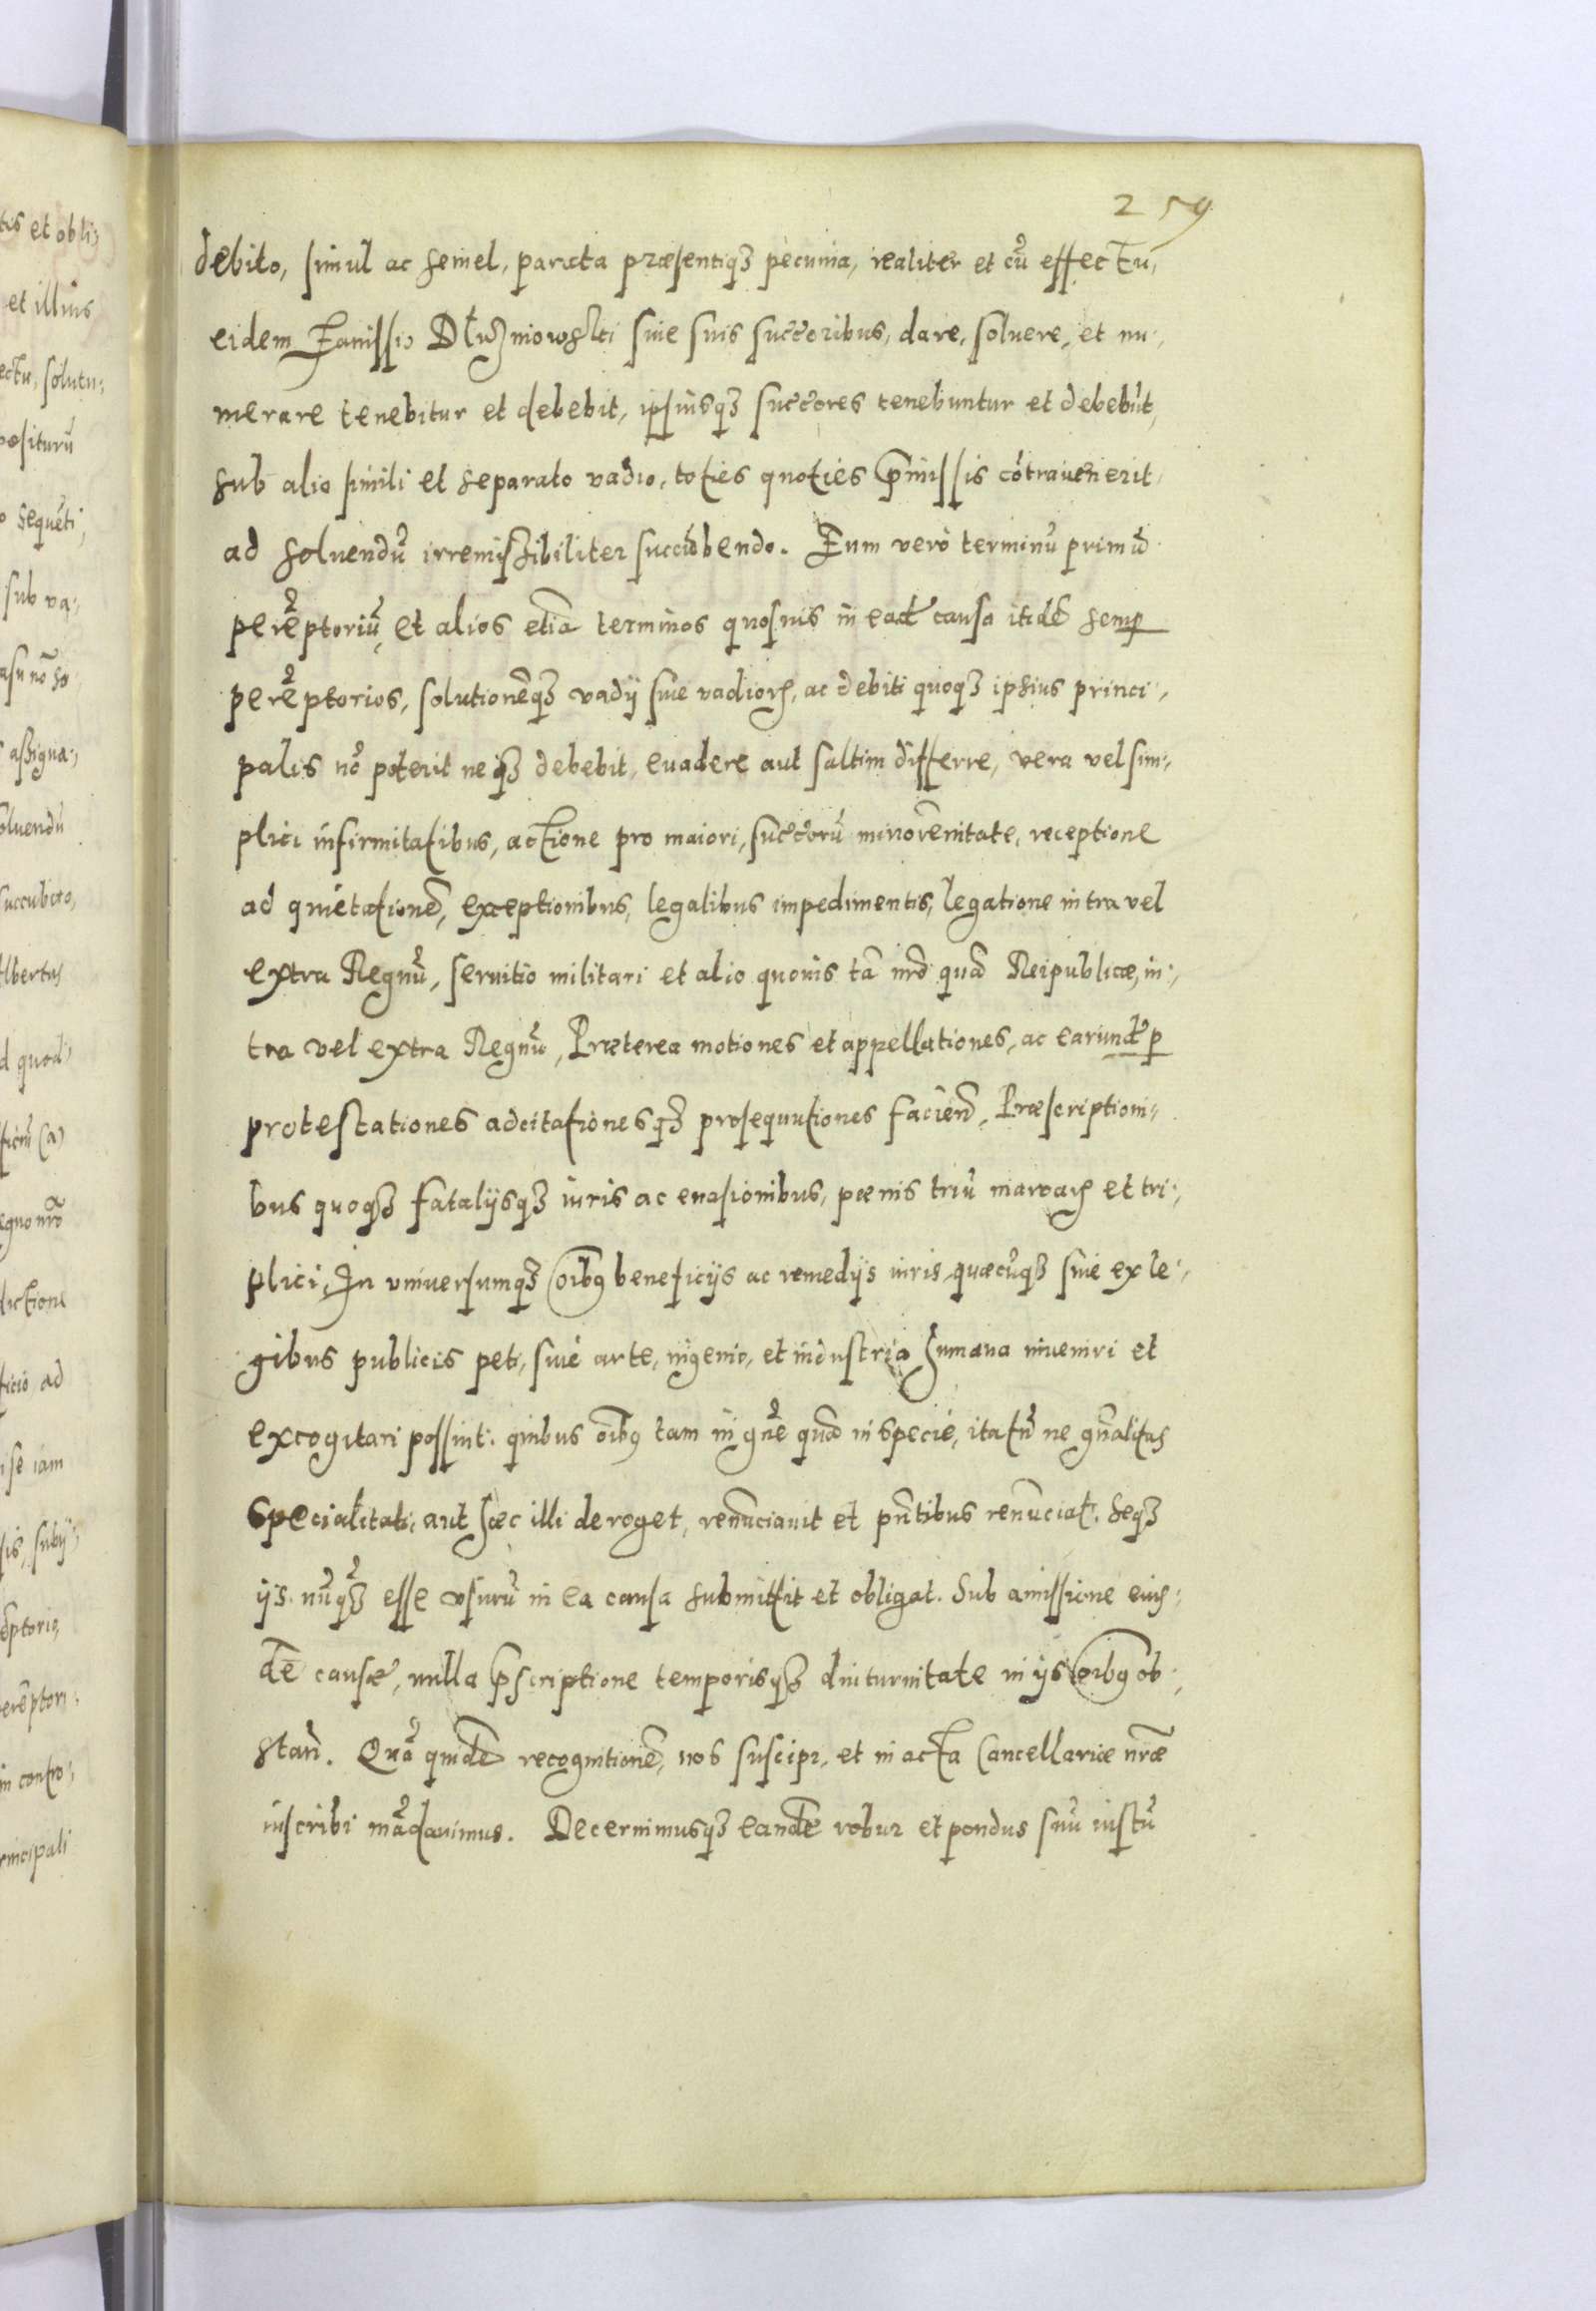 259
debito, simul ac semel, parata præsentiq3 pecunia, realiter et cũ effectu,
eidem Dłużniowski siue suis succõribus, dare, soluere, et nu-,
merare tenebitur et debebit, ipsiusq3 succõres tenebuntur et debebũt,
sub alio simili et separato vadio, toties quoties p̃missis cõtrauenerit
ad soluendũ irremissibiliter succũbendo. Eum verò terminũ primũ
perẽptoriũ, et alios etiã terminos quosuis in eadẽ causa itidẽ semp
perẽptorios, solutionẽq3 vadij siue vadiorꝝ, ac debiti quoq3 ipsius princi-,
palis nõ poterit neq3 debebit, euadere aut saltim differre, vera vel sim-,
plici infirmitatibus, actione pro maiori, succõrũ minorẽnitate, receptione
ad quietationẽ, exceptionibus, legalibus impedimentis, legatione intra vel
extra Regnũ, seruitio militari et alio quouis tã nrõ quã Reipublicæ, in-,
tra vel extra Regnũ, Præterea motiones et appellationes, ac earundẽ p
protestationes adcitationesq3 prosequutiones faciend, Præscriptioni-
bus quoq3 fatalijsq3 iuris ac euasionibus, pœnis triũ marcarꝝ et tri-,
plici, In vniuersumq3 oĩbꝰ beneficijs ac remedijs iuris quæcũq3 siue ex le-,
gibus publicis peti, siue arte, ingenio, et industria humana inueniri et
excogitari possint: quibus oĩbꝰ tam in gñe quã in specie, ita tñ ne gñalitas
specialitati, aut hæc illi deroget, renũciauit et pñtibus renũciat, seq3
ijs nũq3 esse vsurũ in ea causa submittit et obligat. Sub amissione eius-
dẽ causæ, nulla p̃scriptione temporisq3 diuturnitate in ijs oĩbꝰ ob-,
stañ. Quã quidẽ recognitionẽ, nos suscipi, et in acta Cancellariæ nræ
inscribi mãdauimus. Decernimusq3 eandẽ robur et pondus suũ iustũ